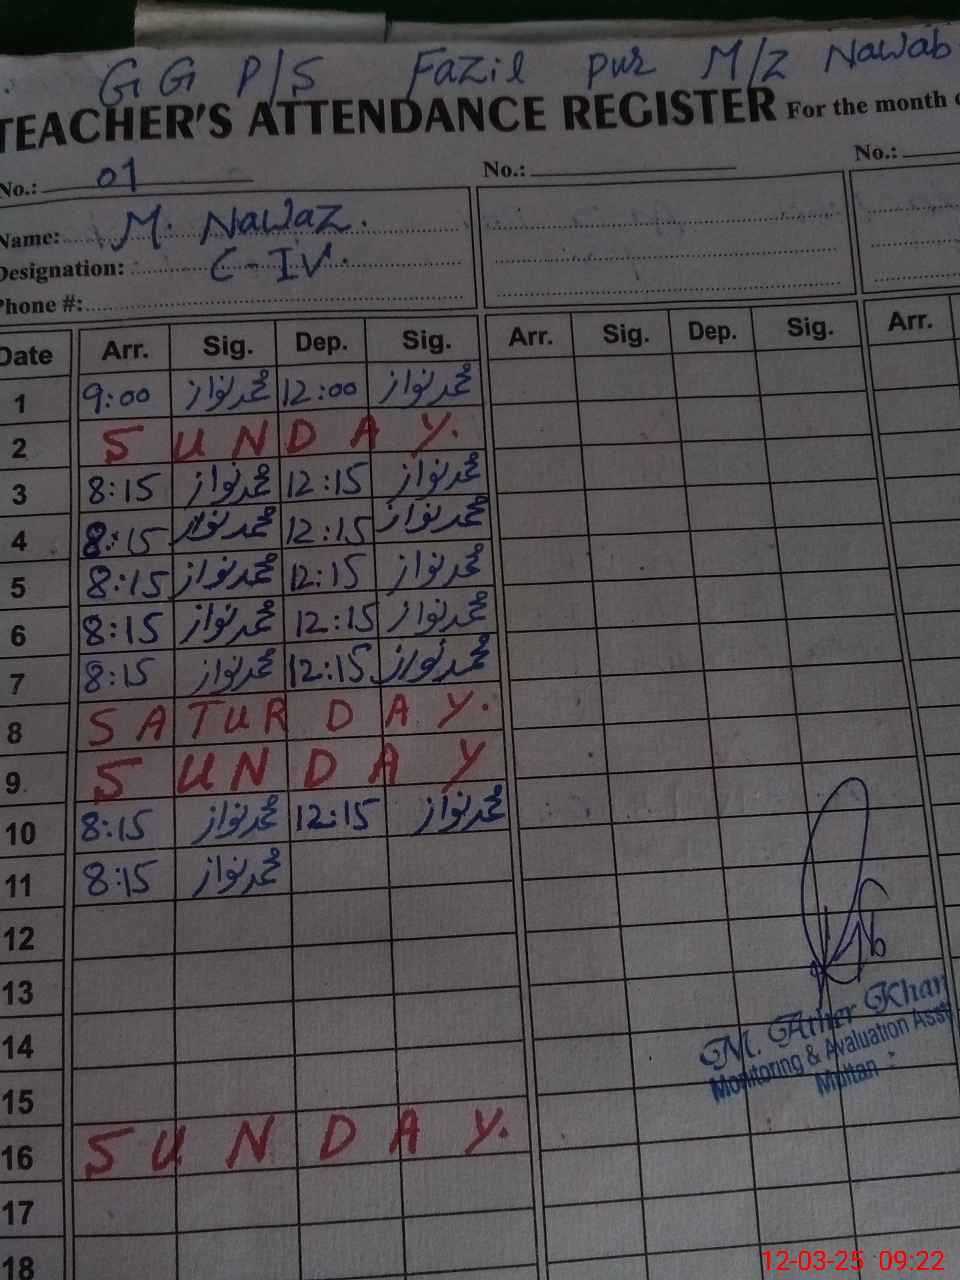 G G P/S Fazil pur M/Z Nawab
TEACHER'S ATTENDANCE REGISTER For the month
No.: 01 No.: No.:
Name: M. Nawaz.
Designation: C-IV.
Phone #:
Date Arr. Sig. Dep. Sig. Arr. Sig. Dep. Sig. Arr.
1 9:00 محمد نواز 12:00 محمد نواز
2 SUNDAY.
3 8:15 محمد نواز 12:15 محمد نواز
4 8:15 محمد نواز 12:15 محمد نواز
5 8:15 محمد نواز 12:15 محمد نواز
6 8:15 محمد نواز 12:15 محمد نواز
7 8:15 محمد نواز 12:15 محمد نواز
8 SATURDAY.
9 SUNDAY
10 8:15 محمد نواز 12:15 محمد نواز
11 8:15 محمد نواز
12
13
14
15
16 SUNDAY.
17
18
M. Ather Khan
Monitoring & Avaluation Asst
Multan
12-03-25 09:22